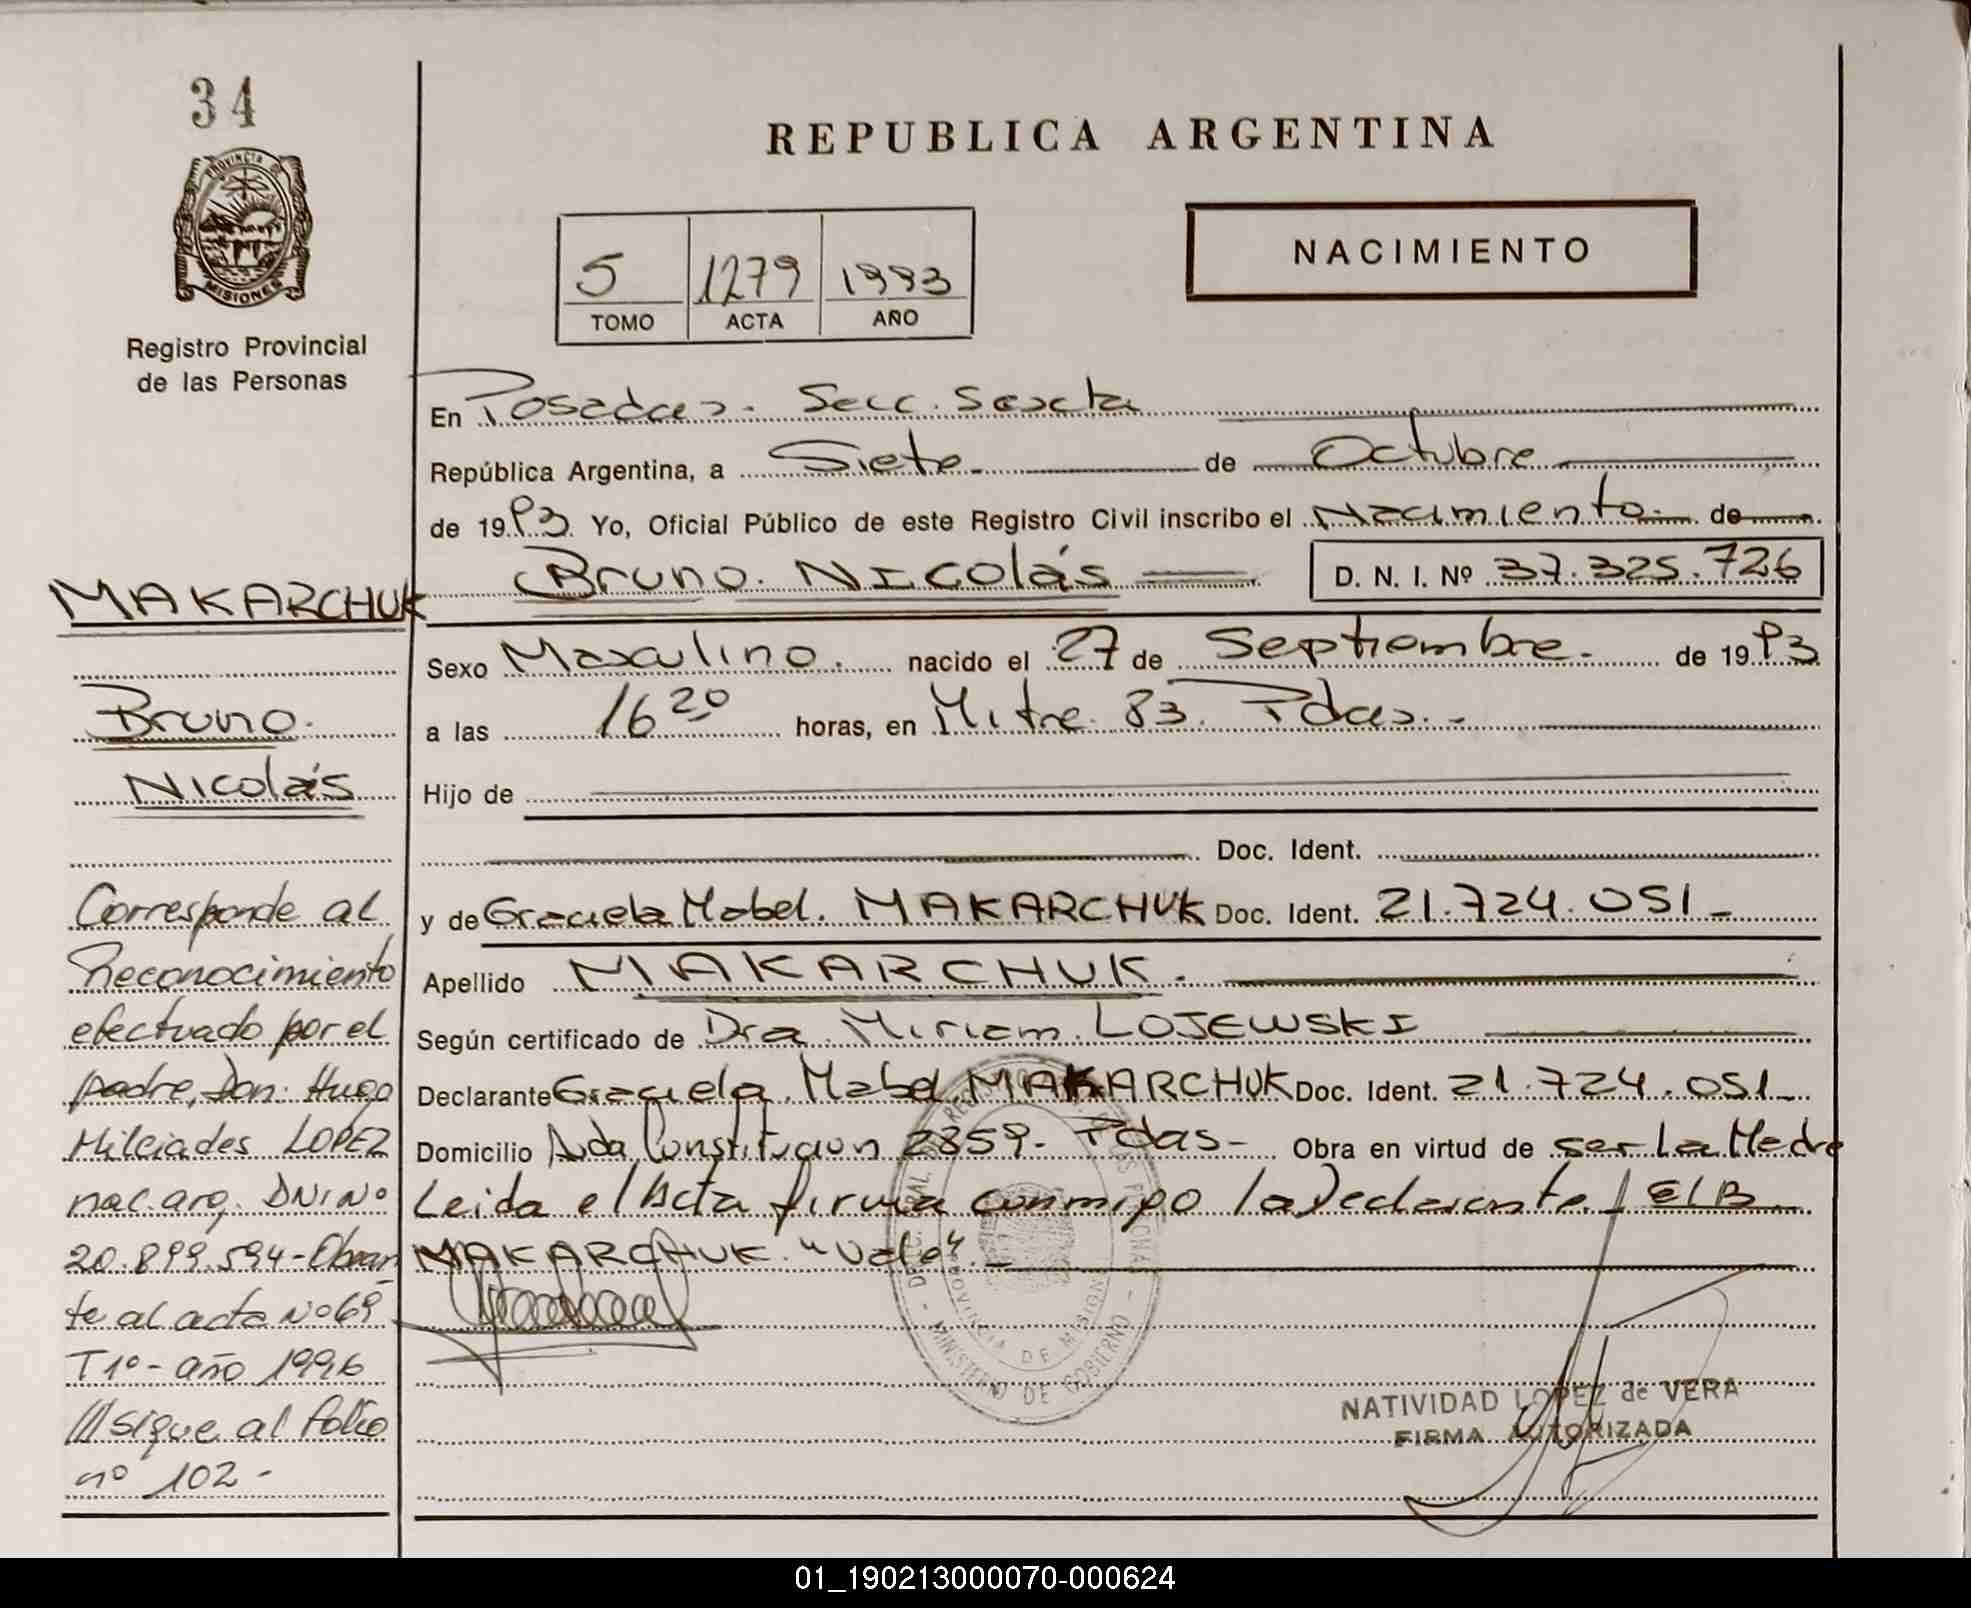 34
PROVINCIA DE
MISIONES
Registro Provincial
de las Personas
REPUBLICA ARGENTINA
NACIMIENTO
5 1279 1993
TOMO ACTA AÑO
En Posadas. Secc. Sexta
República Argentina, a Siete de Octubre
de 1993 Yo, Oficial Público de este Registro Civil inscribo el Nacimiento de
Bruno Nicolás D. N. I. Nº 37.325.726
Sexo Masculino. nacido el 27 de Septiembre. de 1993
a las 16 20 horas, en Mitre 83. Pdas.
Hijo de
Doc. Ident.
y de Graciela Mabel. MAKARCHUK Doc. Ident. 21.724.051
Apellido MAKARCHUK.
Según certificado de Dra. Miriam. LOJEWSKI
Declarante Graciela Mabel MAKARCHUK Doc. Ident. 21.724.051
Domicilio Avda Constitucion 2859- Pdas- Obra en virtud de ser la Madre
Leida el Acta firma conmigo la Declarante
MAKARCHUK. "Vale".
NATIVIDAD LOPEZ de VERA
FIRMA AUTORIZADA
PROVINCIA DE MISIONES
MINISTERIO DE GOBIERNO
MAKARCHUK
Bruno.
Nicolás
Corresponde al
Reconocimiento
efectuado por el
padre, Don: Hugo
Milciades LOPEZ
nac. arg. DNI Nº
20.899.594-Obran
te al acta Nº 69
T1º- año 1996
///sigue al folio
nº 102-
01_190213000070-000624